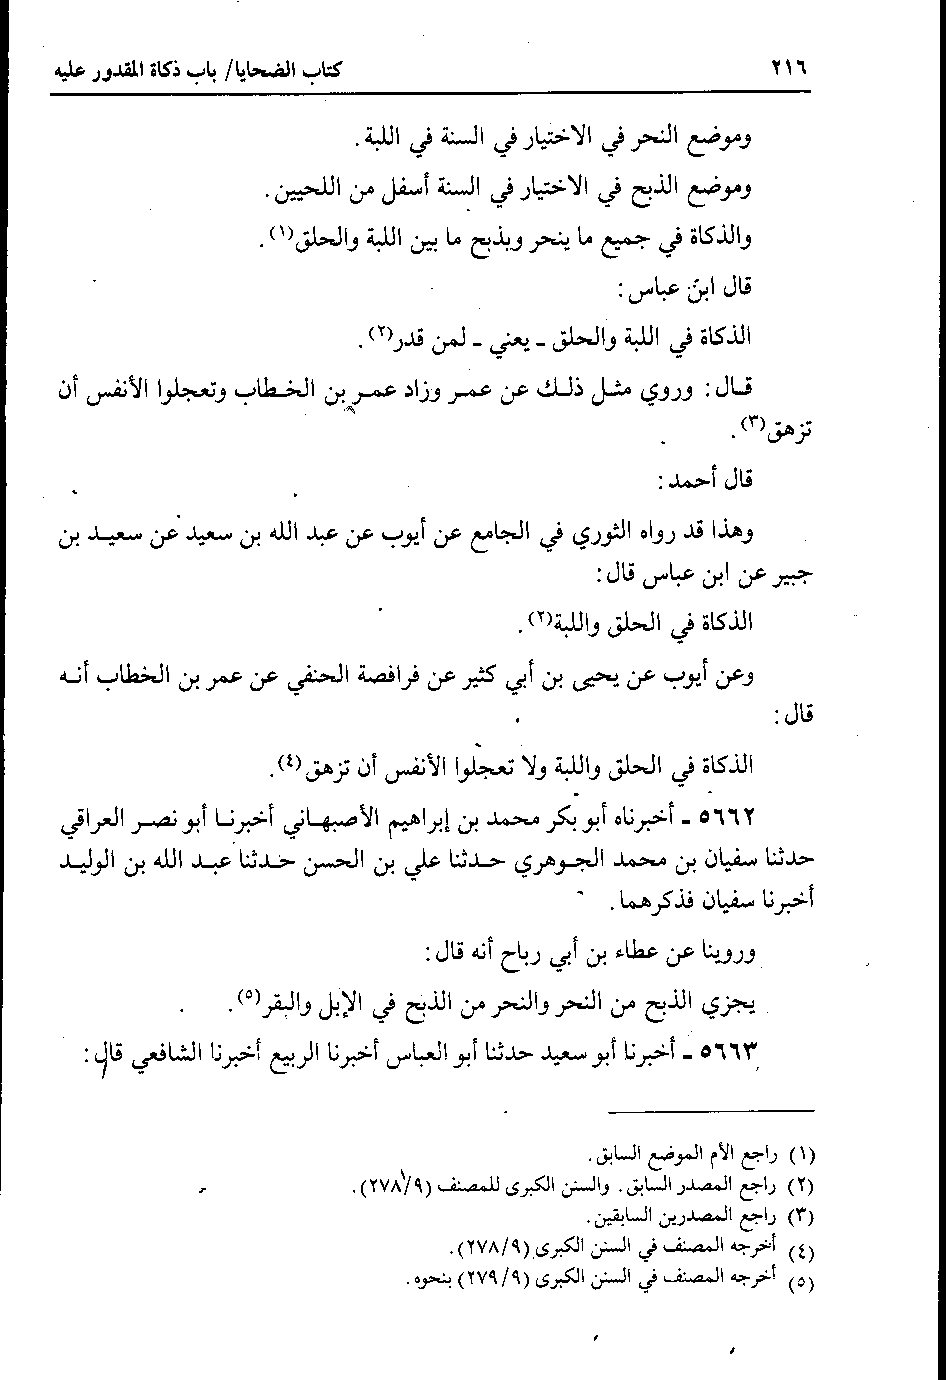 ٢١٦ كتاب الضحايا/ باب ذكاة المقدور عليه
وموضع النحر في الاختيار في السنة في اللبة.
وموضع الذبح في الاختيار في السنة أسفل من اللحيين.
والذكاة في جميع ما ينحر ويذبح ما بين اللبة والحلق(١).
قال ابنُ عباس:
الذكاة في اللبة والحلق - يعني - لمن قدر(٢).
قال: وروي مثل ذلك عن عمر وزاد عمر بن الخطاب وتعجلوا الأنفس أن
تزهق(٣).
قال أحمد:
وهذا قد رواه الثوري في الجامع عن أيوب عن عبد الله بن سعيد عن سعيد بن
جبير عن ابن عباس قال:
الذكاة في الحلق واللبة(٢).
وعن أيوب عن يحيى بن أبي كثير عن فرافصة الحنفي عن عمر بن الخطاب أنه
قال:
الذكاة في الحلق واللبة ولا تعجلوا الأنفس أن تزهق(٤).
٥٦٦٢ - أخبرناه أبو بكر محمد بن إبراهيم الأصبهاني أخبرنا أبو نصر العراقي
حدثنا سفيان بن محمد الجوهري حدثنا علي بن الحسن حدثنا عبد الله بن الوليد
أخبرنا سفيان فذكرهما.
وروينا عن عطاء بن أبي رباح أنه قال:
يجزي الذبح من النحر والنحر من الذبح في الإبل والبقر(٥).
٥٦٦٣ - أخبرنا أبو سعيد حدثنا أبو العباس أخبرنا الربيع أخبرنا الشافعي قال:
(١) راجع الأم الموضع السابق.
(٢) راجع المصدر السابق. والسنن الكبرى للمصنف (٢٧٨/٩).
(٣) راجع المصدرين السابقين.
(٤) أخرجه المصنف في السنن الكبرى (٢٧٨/٩).
(٥) أخرجه المصنف في السنن الكبرى (٢٧٩/٩) بنحوه.